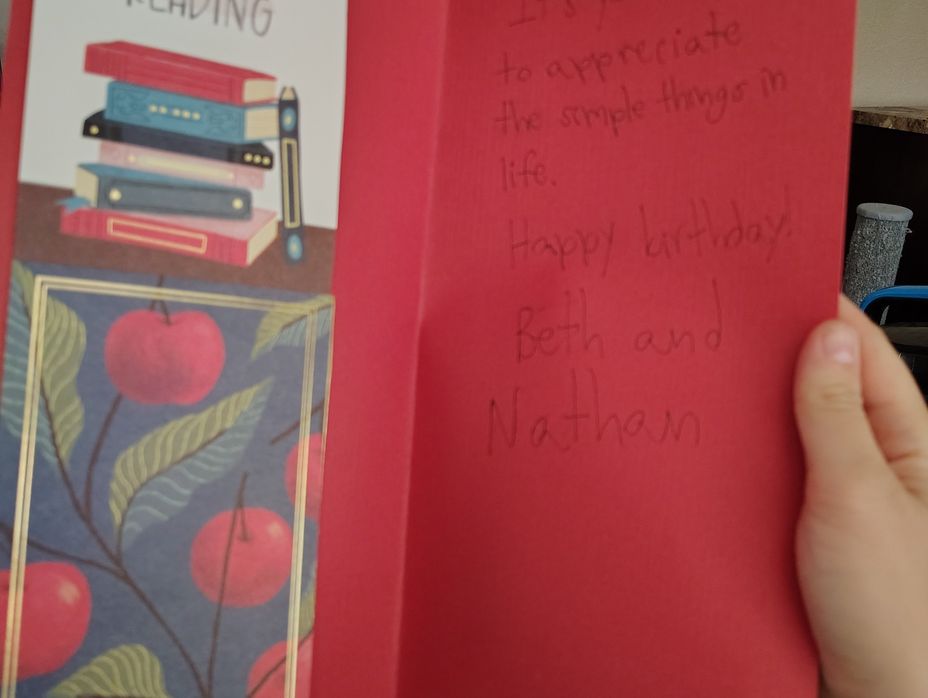 READING
It's
to appreciate
the simple things in
life.
Happy birthday!
Beth and
Nathan